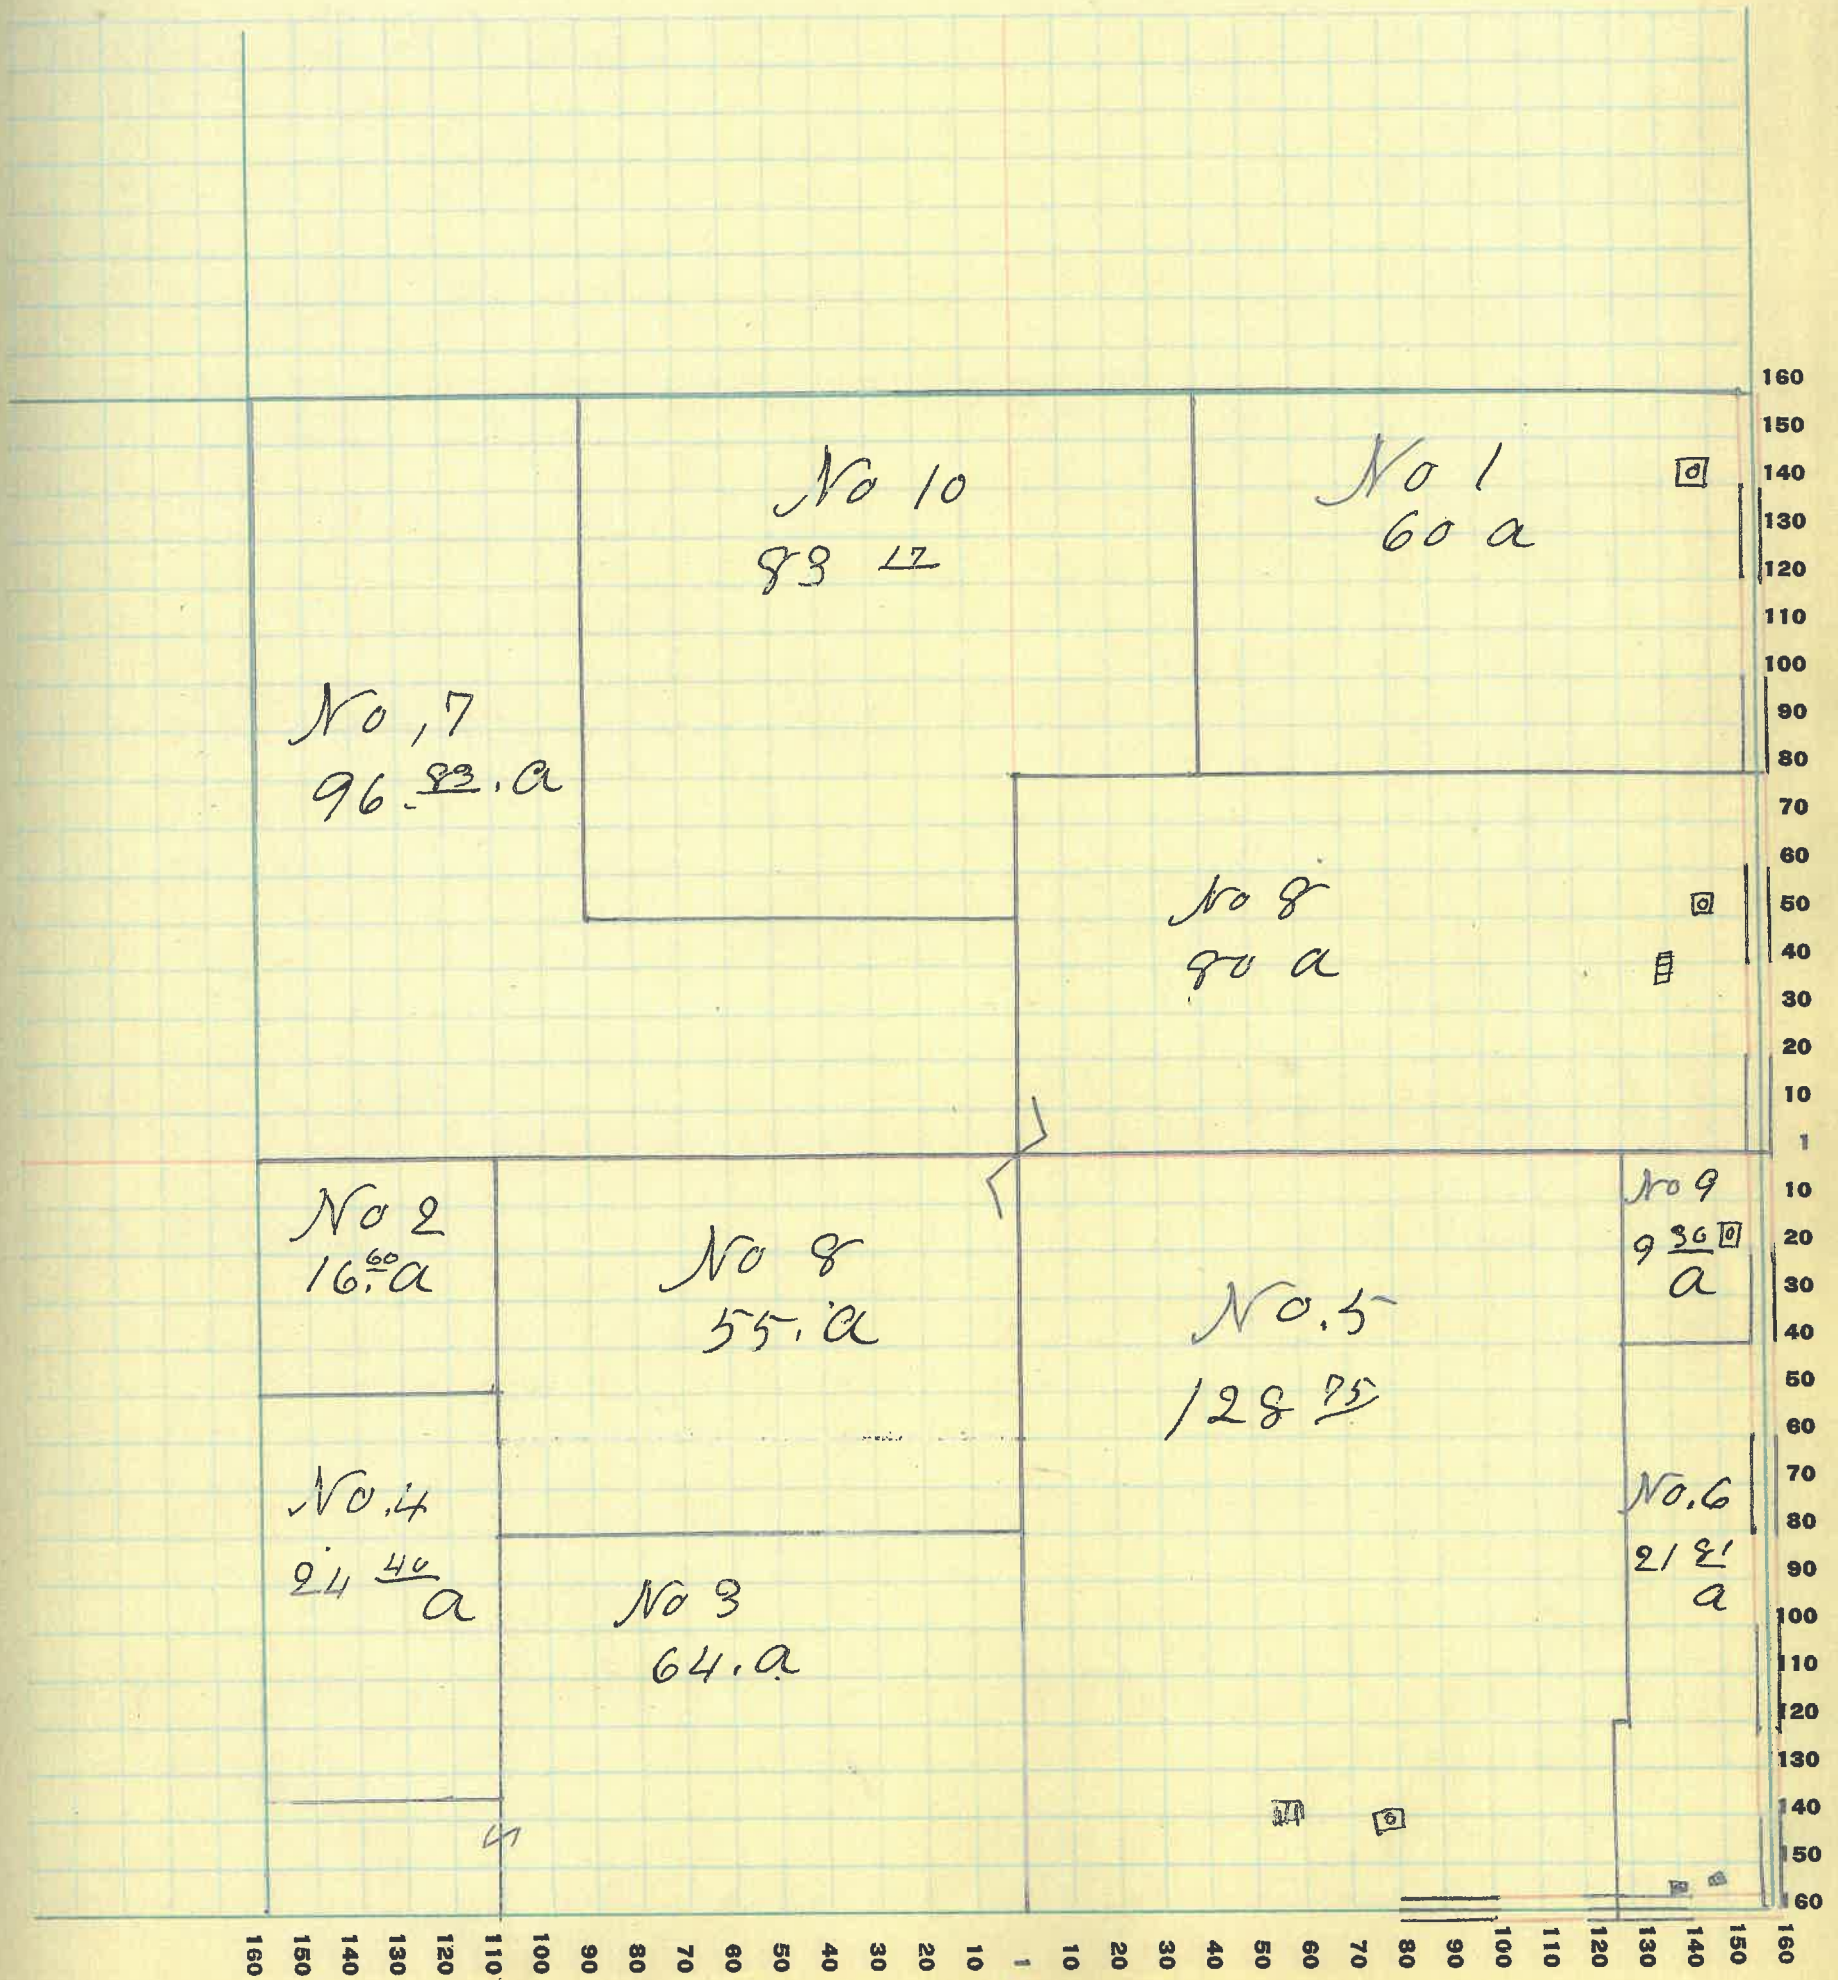 No 10
83 17
No 1
60 a
No ,7
96. 83. a
No 8
80 a
No 2
16.60 a
No 8
55. a
No.5
128 75
No 9
9 30
a
No.4
24 40
a
No 3
64. a
No.6
21 81
a
160
150
140
130
120
110
100
90
80
70
60
50
40
30
20
10
1
10
20
30
40
50
60
70
80
90
100
110
120
130
140
150
160
160
150
140
130
120
110
100
90
80
70
60
50
40
30
20
10
1
10
20
30
40
50
60
70
80
90
100
110
120
130
140
150
160